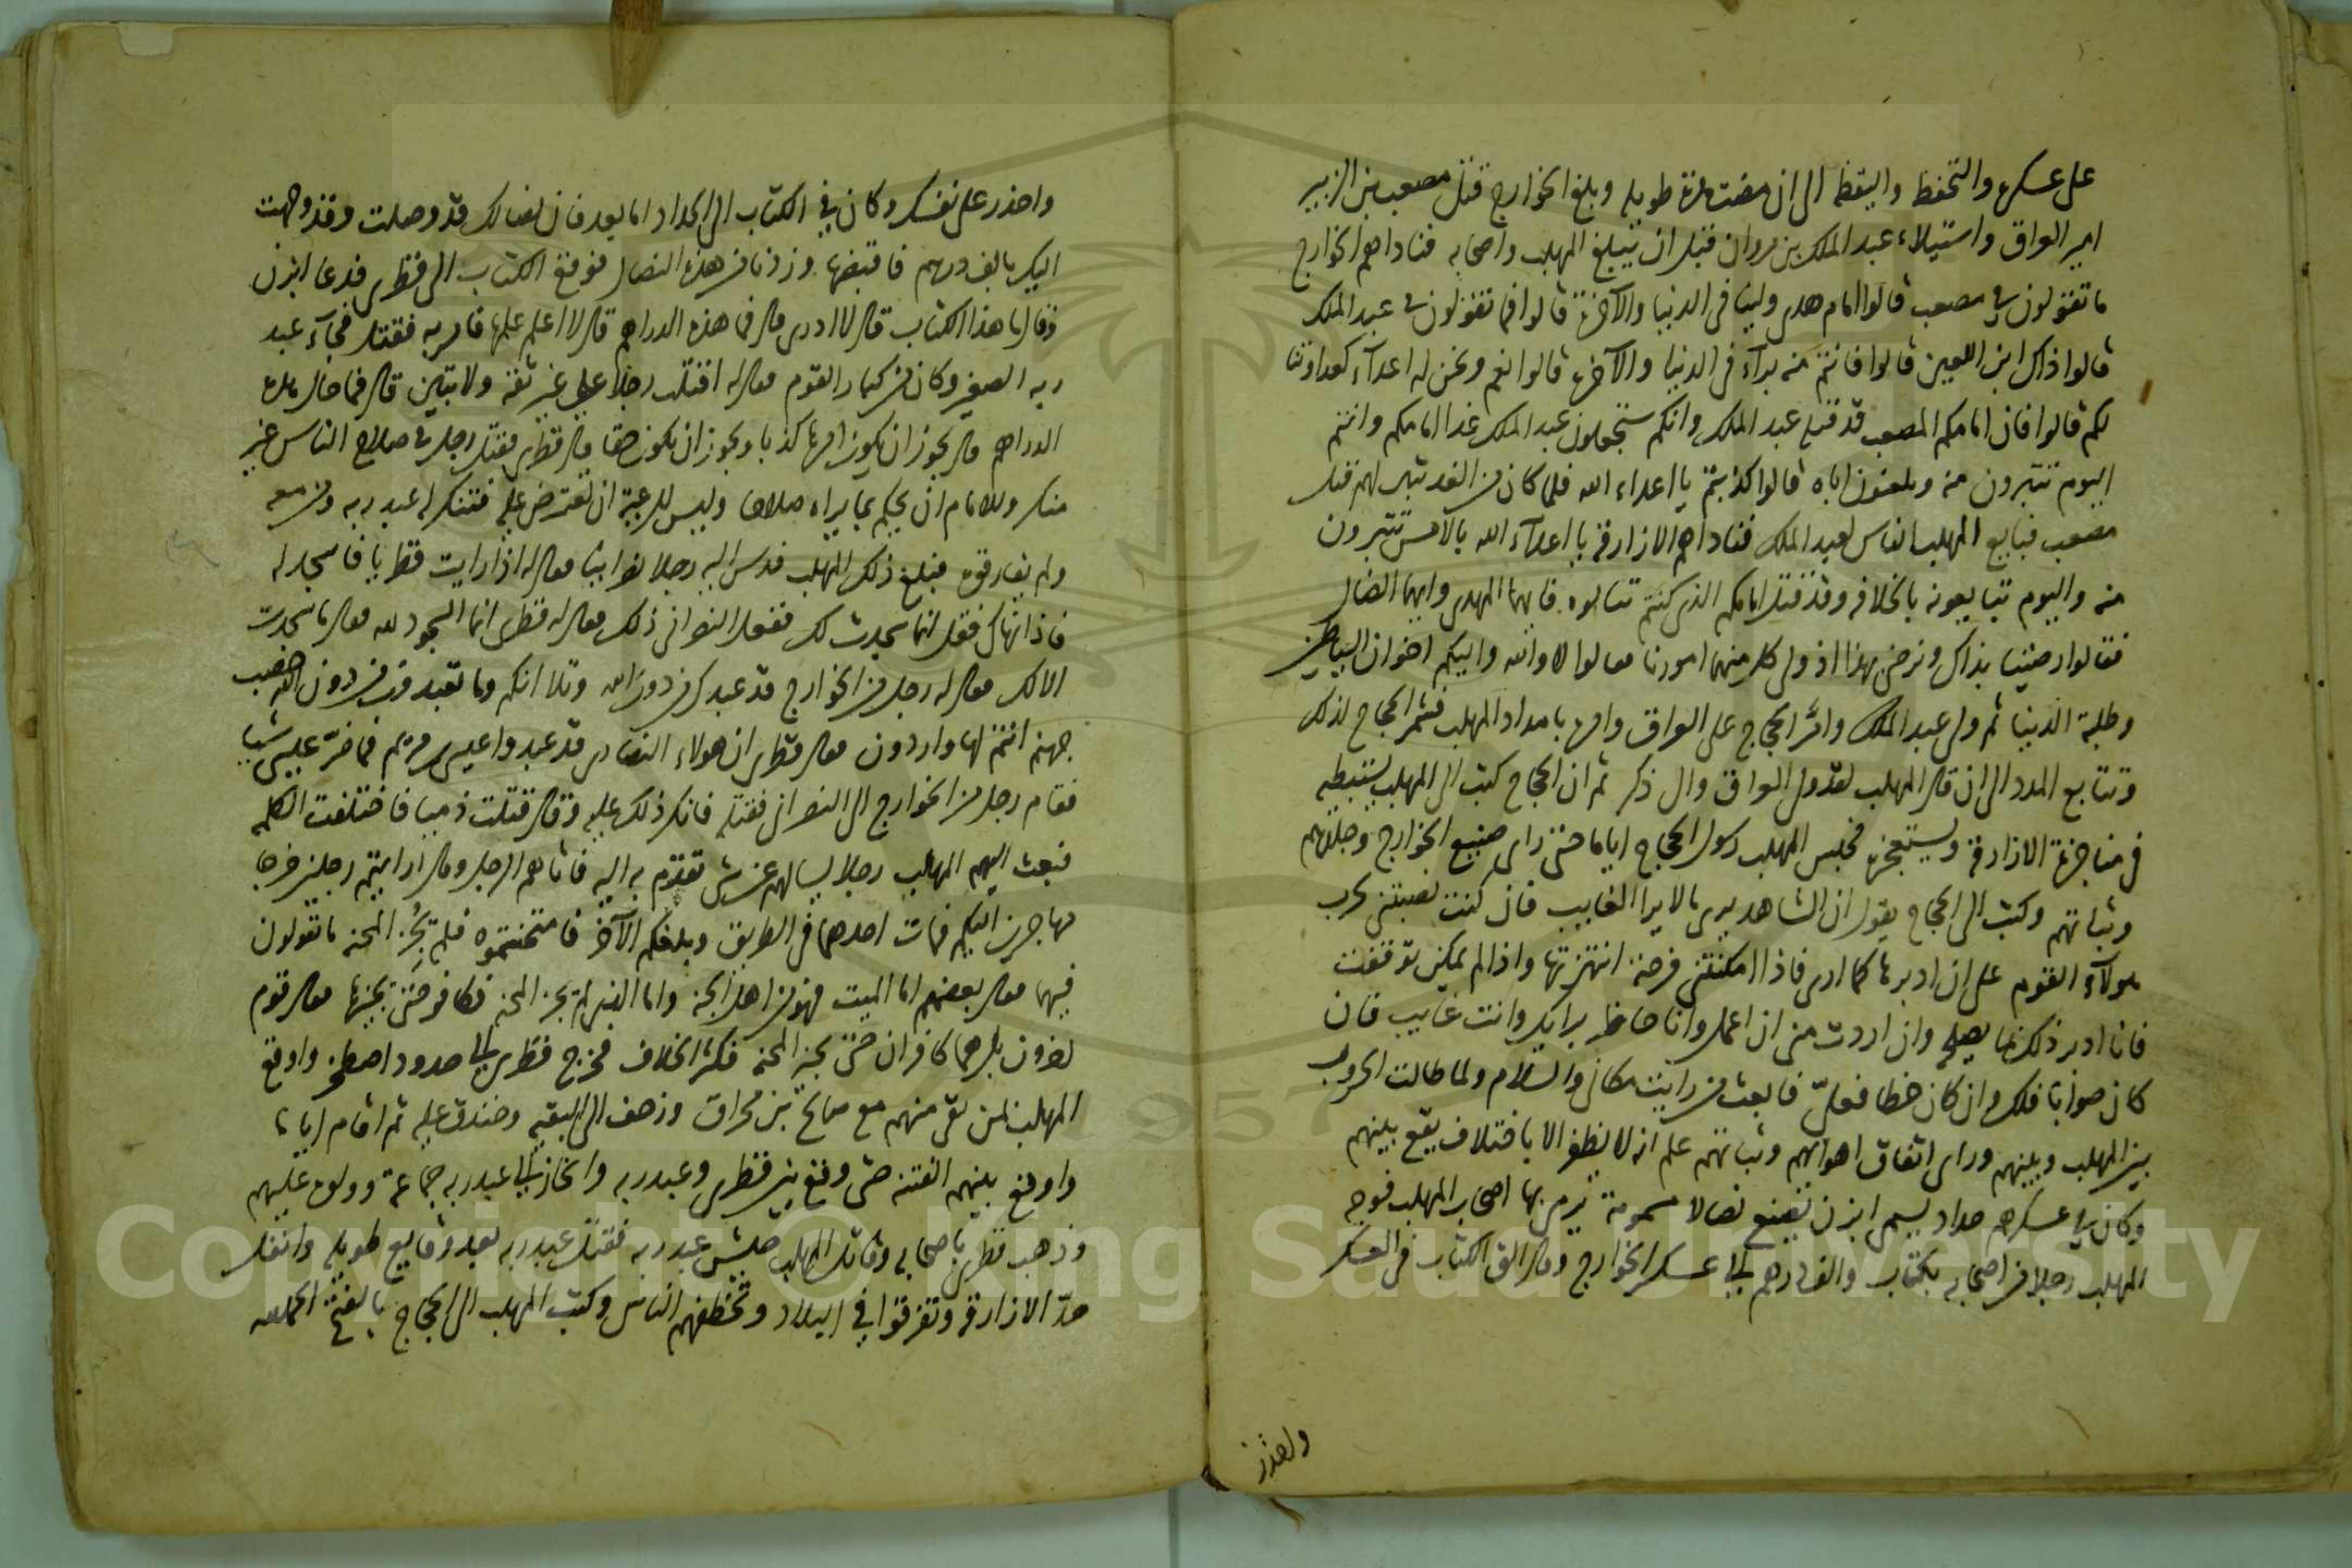 على عسكره والتحفظ واليقظه الى ان مضت مدة طويله وبلغ الخوارج قتل مصعب بن الزبير
امير العراق واستيلاء عبد الملك بن مروان قبل ان يبلغ المهلب واصحابه فناداهم الخوارج
ما تقولون في مصعب قالوا امام هدى ولينا في الدنيا والآخرة قالوا فما تقولون في عبد الملك
قالوا ذاك ابن اللعين قالوا فانتم منه برآء في الدنيا والآخرة قالوا نعم ونحن له اعدآء كعداوتنا
لكم قالوا فان امامكم المصعب قد قتله عبد الملك وانكم ستجعلون عبد الملك غدا امامكم وانتم
اليوم تتبرون منه وتلعنون اباه قالوا كذبتم يا اعداء الله فلما كان من الغد تبين لهم قتل
مصعب فبايع المهلب الناس لعبد الملك فناداهم الازارقة يا اعدآء الله بالامس تتبرون
منه واليوم تبايعونه بالخلافه وقد قتل امامكم الذي كنتم تتابوه فايهما المهدي وايهما الضال
فقالوا رضينا بذاك ونرضى بهذا اذ ولي كل منهما امورنا فقالوا لا والله ولكنكم اخوان الشياطين
وطلبة الدنيا ثم ولى عبد الملك وامّر الحجاج على العراق وامره بامداد المهلب فشمر الحجاج لذلك
وتتابع المدد الى ان قال المهلب لقد ولى العراق وال ذكر ثم ان الحجاج كتب الى المهلب يستبطيه
في مناجزة الازارقة ويستعجزه فحبس المهلب رسول الحجاج اياما حتى راى صنيع الخوارج وجلدهم
وثباتهم وكتب الى الحجاج يقول ان الشاهد يرى ما لا يراه الغايب فان كنت نصبتني لحرب
هولآء القوم على ان ادبرها كما ارى فاذا امكنتني فرصة انتهزتها واذا لم يمكن توقفت
فانا ادبر ذلك بما يصلحه وان اردت مني ان اعمل وانا حاضر برايك وانت غايب فان
كان صوابا فلك وان كان خطا فعلىّ فابعث من رايت مكاني والسلام ولما طالت الحروب
بين المهلب وبينهم وراى اتفاق اهوايهم وثباتهم علم انه لا يظفر الا باختلاف يقع بينهم
وكان في عسكرهم حداد يسمى ابزن يصنع نصالا مسمومة يرمى بها اصحاب المهلب فوجه
المهلب رجلا من اصحابه بكتاب والف درهم الى عسكر الخوارج وقال الق الكتاب في العسكر
واحذر
واحذر على نفسك وكان في الكتاب الى الحداد اما بعد فان نصالك قد وصلت وقد وجهت
اليك بالف درهم فاقبضها وزدنا من هذه النصال فوقع الكتاب الى قطرى فدعا ابزن
وقال ما هذا الكتاب قال لا ادرى قال فما هذه الدراهم قال لا اعلم علمها فامر به فقتل فجآء عبد
ربه الصغير وكان من كبار القوم فقال له اقتلت رجلا على غير ثقة ولا تبين قال فما حال هذه
الدراهم قال يجوز ان يكون امرها كذبا ويجوز ان يكون حقا قال قطرى فقتل رجل في صلاح الناس غير
منكر وللامام ان يحكم بما يراه صلاحا وليس للرعية ان تعترض عليه فتنكر له عبد ربه ومن معه
ولم يفارقوه فبلغ ذلك المهلب فدس اليه رجلا نصرانيا فقال له اذا رايت قطريا فاسجد له
فاذا نهاك فقل انما سجدت لك ففعل النصراني ذلك فقال له قطرى انما السجود لله فقال ما سجدت
الا لك فقال له رجل من الخوارج قد عبدك من دون الله وتلا انكم وما تعبدون من دون الله حصب
جهنم انتم لها واردون فقال قطرى ان هولاء النصارى قد عبدوا عيسى بن مريم فما ضرّ عيسى شيا
فقام رجل من الخوارج الى النصراني فقتله فانكر ذلك عليه وقال قتلت ذميا فاختلفت الكلمه
فبعث اليهم المهلب رجلا يسالهم عن شى تقدم به اليه فاتاهم الرجل وقال ارايتم رجلين خرجا
مهاجرين اليكم فمات احدهما في الطريق وبلغكم الآخر فامتحنتموه فلم يُجز المحنه ما تقولون
فيهما فقال بعضهم اما الميت فهو من اهل الجنه واما الذى لم يجز المحنه فكافر حتى يجيزها فقال قوم
اخرون بل هما كافران حتى يجيزا المحنه فكثر الخلاف فخرج قطرى الى حدود اصطخر واوقع
المهلب بمن بقى منهم مع صالح بن مخراق وزحف الى البقيه وخندق عليه ثم اقام اياما
واوقع بينهم الفتنه حتى وقع بين قطرى وعبد ربه وانحاز الى عبد ربه جماعة وولوه عليهم
وذهب قطرى باصحابه وقاتل المهلب جيش عبد ربه فقتل عبد ربه بعد وقايع طويله وانفل
حدّ الازارقه وتفرقوا في البلاد وتخطفهم الناس وكتب المهلب الى الحجاج بالفتح الحمد لله
Copyright © King Saud University
1957